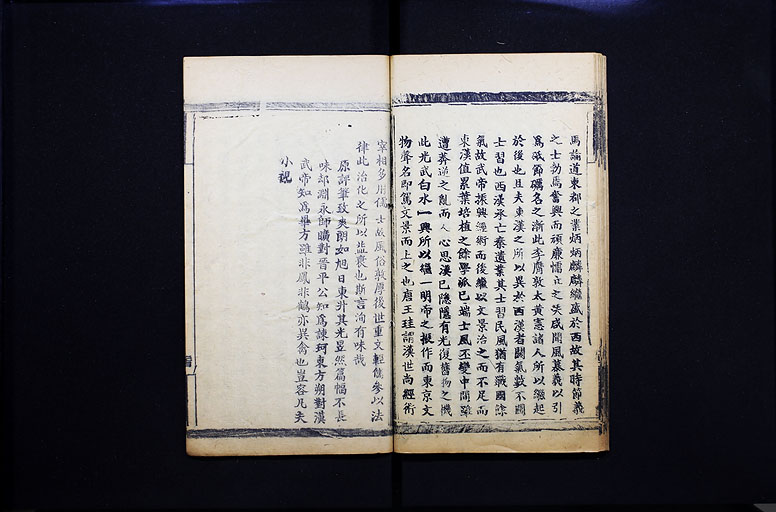 馬論道東都之業炳炳麟麟繼盛於西故其時節義
之士勃焉奮興而頑廉懦立之失咸聞風慕義以引
爲砥節礪名之漸此李膺郭太黃憲諸人所以繼起
於後也且夫東漢之所以異於西漢者關氣數不關
士習也西漢承亡秦遺業其士習民風猶有戰國詐
氣故武帝振興經術而後繼以文景治之而不足而
東漢值累葉培植之餘學派已端士風丕變中間雖
遭莽逆之亂而人心思漢已隱隱有光復舊物之機
此光武白水一興所以繼一明帝之振作而東京文
物聲名卽駕文景而上之也唐王珪謂漢世尚經術
宰相多用儒士故風俗敦厚後世重文輕儒參以法
律此治化之所以益衰也斯言洵有味哉
原評筆致爽朗如旭日東升其光昱然篇幅不長
味却淵永師曠對晉平公知爲諫珂東方朔對漢
武帝知爲畢方雖非鳳非鶴亦異禽也豈容凡夫
小覷